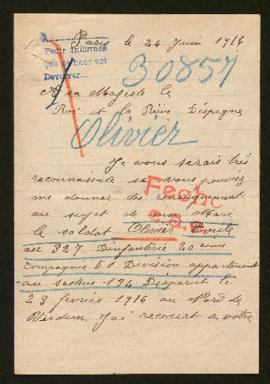 Paris le 24 Juin 1916
A
Pedir informes
Devolver
30857
A sa Majesté le
Roi et la Reine D'espagne
Olivier
Je vous serais très
reconnaissante si vous pouviez
me donner des renseignement
au sujet de mon Mari
Fecho
le soldat Olivier Emile
au 327 D'infanterie 20 eme
Compagnie 51 Division appartenent
au secteur 124 Disparut le
23 février 1916 au Nord de
Verdun J'ai recourt a votre